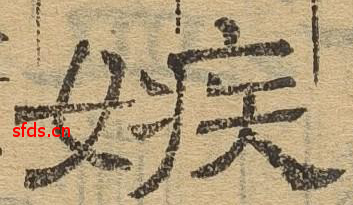 嫉
sfds.cn